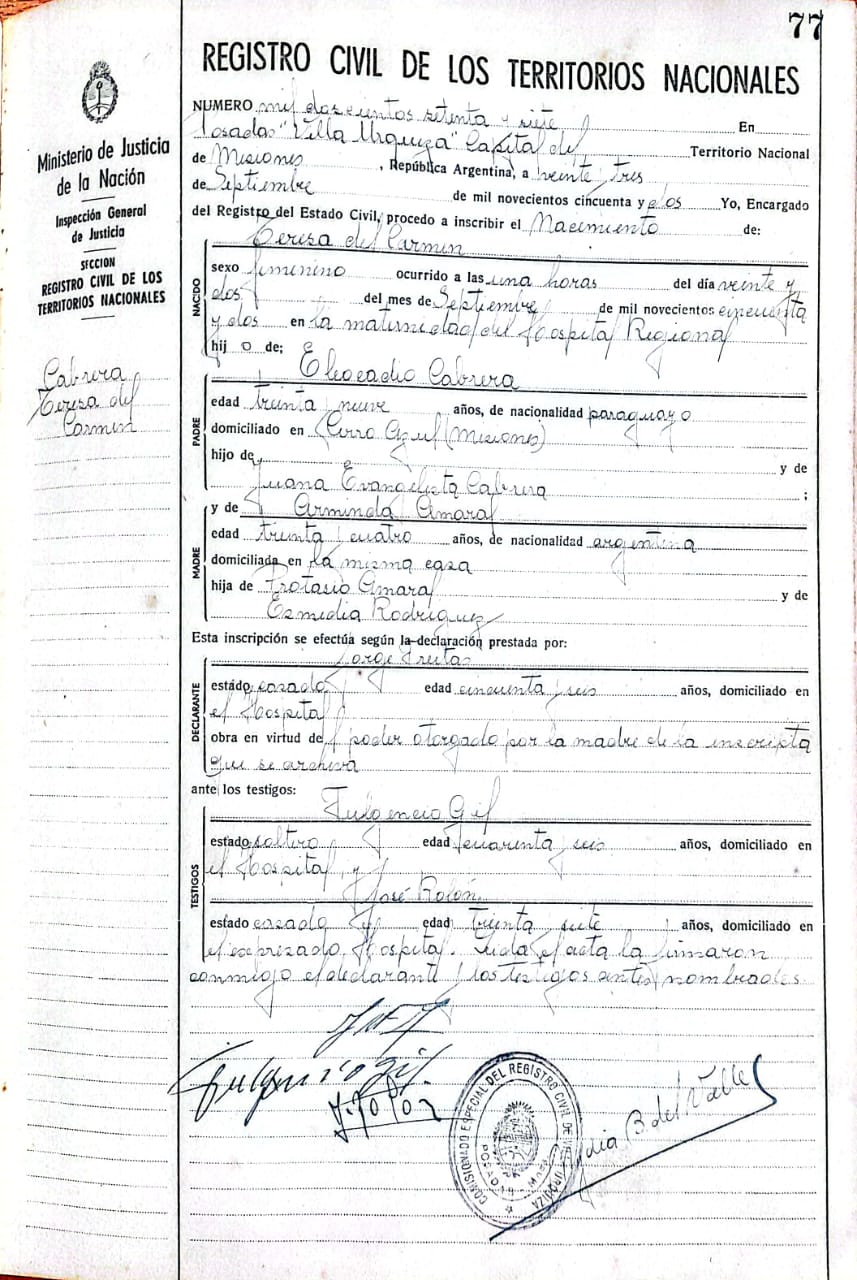 77
REGISTRO CIVIL DE LOS TERRITORIOS NACIONALES
Ministerio de Justicia
de la Nación
Inspección General
de Justicia
SECCION
REGISTRO CIVIL DE LOS
TERRITORIOS NACIONALES
Cabrera
Teresa del
Carmen
NUMERO mil doscientos setenta y siete En
Posadas "Villa Urquiza" Capital del Territorio Nacional
de Misiones, República Argentina, a veinte y tres
de Septiembre de mil novecientos cincuenta y dos Yo, Encargado
del Registro del Estado Civil, procedo a inscribir el Nacimiento de:
Teresa del Carmen
NACIDO
sexo femenino ocurrido a las una horas del día veinte y
dos del mes de Septiembre de mil novecientos cincuenta
y dos en la maternidad del Hospital Regional
hij o de;
Eleocadio Cabrera
PADRE
edad treinta y nueve años, de nacionalidad paraguayo
domiciliado en Cerro Azul (Misiones)
hijo de y de
Juana Evangelista Cabrera ;
y de Arminda Amaral
MADRE
edad treinta y cuatro años, de nacionalidad argentina
domiciliada en la misma casa
hija de Protasio Amaral y de
Esmedia Rodriguez
Esta inscripción se efectúa según la declaración prestada por:
Jorge Freitas
DECLARANTE
estado casado edad cincuenta y seis años, domiciliado en
el Hospital
obra en virtud del poder otorgado por la madre de la inscripta
que se archiva
ante los testigos:
Fulgencio Gil
TESTIGOS
estado soltero edad cuarenta y seis años, domiciliado en
el Hospital, y
José Rolón
estado casado edad treinta y siete años, domiciliado en
el expresado Hospital. Leida el acta la firmaron
conmigo el declarante y los testigos antes nombrados.
Fulgencio Gil
J. Rolon
B del Valle
COMISIONADO ESPECIAL DEL REGISTRO CIVIL DE VILLA URQUIZA
POSADAS